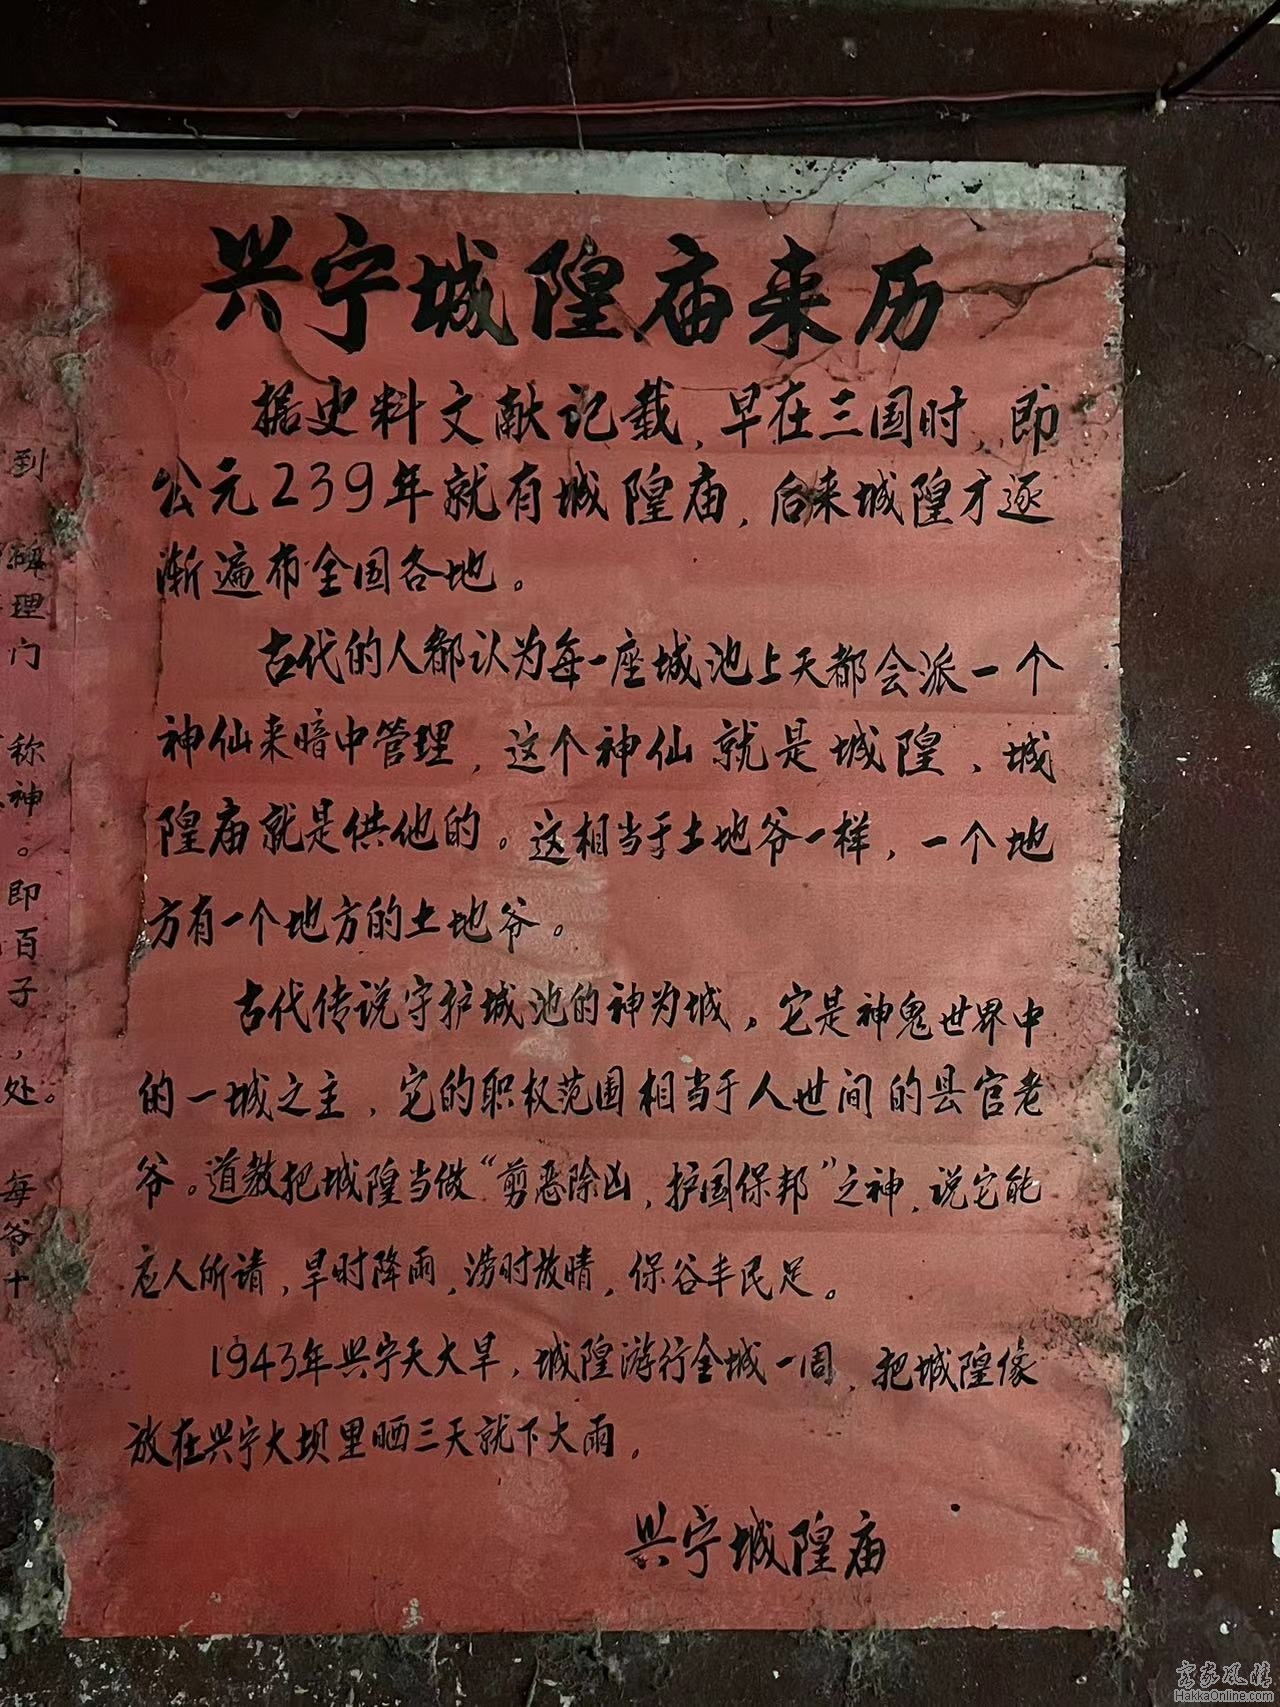 兴宁城隍庙来历
据史料文献记载,早在三国时,即
公元239年就有城隍庙,后来城隍才逐
渐遍布全国各地。
古代的人都认为每一座城池上天都会派一个
神仙来暗中管理,这个神仙就是城隍、城
隍庙就是供他的。这相当于土地爷一样,一个地
方有一个地方的土地爷。
古代传说守护城池的神为城,它是神鬼世界中
的一城之主、它的职权范围相当于人世间的县官老
爷。道教把城隍当做“剪恶除凶,护国保邦”之神,说它能
应人所请,旱时降雨,涝时放晴,保谷丰民足。
1943年兴宁天大旱,城隍游行全城一周,把城隍像
放在兴宁大坝里晒三天就下大雨。
兴宁城隍庙
到
碑理门
称神。即百子,处。
每爷十
客家风情
HakkaOnline.com